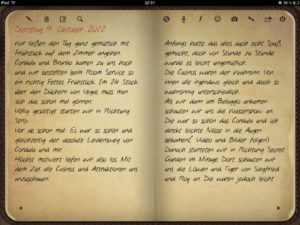 iPod
22:51
Dienstag 4. Oktober 2022
Wir ließen den Tag ganz gemütlich mit
Frühstück auf dem Zimmer angehen.
Cordula und Branko kamen zu uns hoch
und wir bestellten beim Room Service so
ein richtig fettes Frühstück. Im 24 Stock
über den Dächern von Vegas muss man
sich das schon mal gönnen.
Völlig gesättigt starten wir in Richtung
Vor ab schon mal: Es war so schön und
gleichzeitig der absolute Leidensweg von
Cordula und mir.
Höchst motiviert liefen wir also los. Mit
dem Ziel die Casinos und Attraktionen uns
anzuschauen.
Anfangs hatte das alles auch echt Spaß
gemacht, doch von Stunde zu Stunde
wurde es leicht ungemütlich.
Die Casinos waren der Wahnsinn. Von
innen alle irgendwie gleich und doch so
wahnsinnig unterschiedlich.
Als wir dann am Bellagio ankamen
schauten wir uns die Wassershow an.
Die war so schön das Cordula und ich
direkt leichte Nässe in die Augen
bekamen.( Video und Bilder folgen)
Danach starteten wir in Richtung Secret
Garden im Mirage. Dort schauten wir
uns die Löwen und Tiger von Siegfried
und Roy an. Die waren jedoch leicht